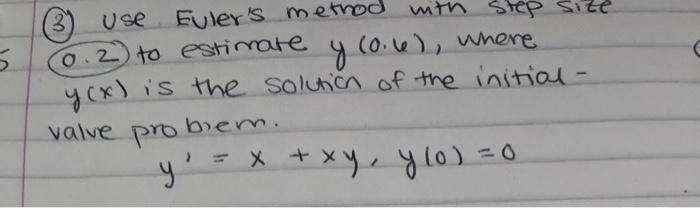 ③ Use Euler's method with step size
0.2 to estimate y(0.6), where
y(x) is the solution of the initial-
value problem.
y' = x + xy, y(0) = 0